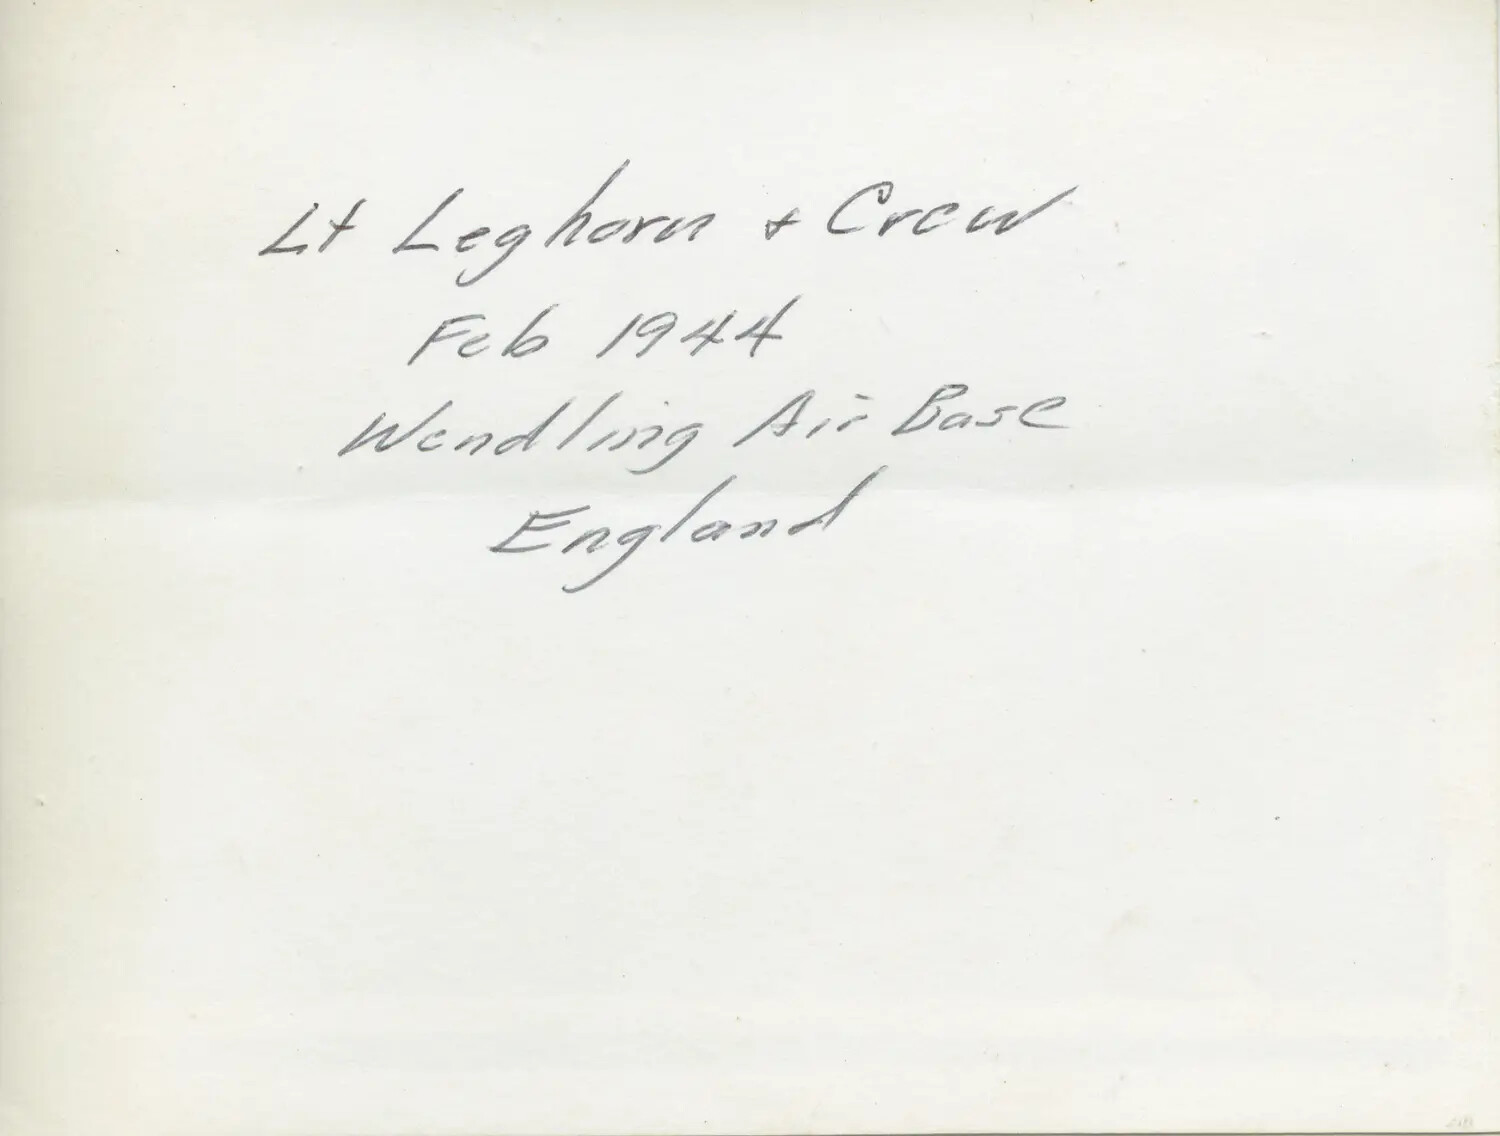 Lt Leghorn + Crew
Feb 1944
Wendling Air Base
England